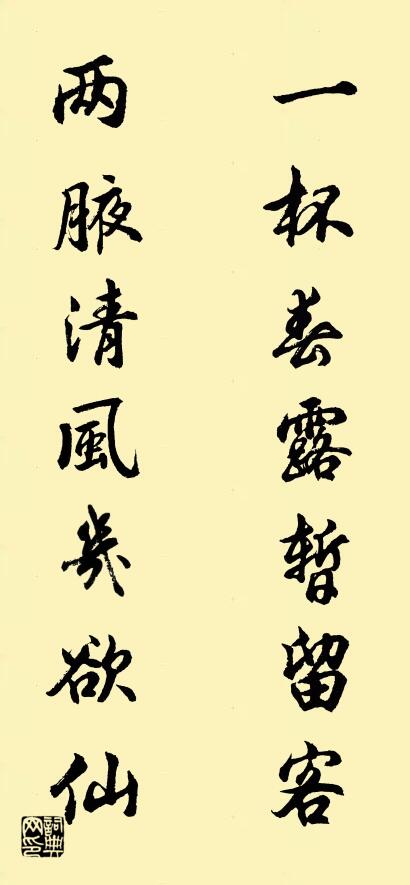 一杯春露暫留客
两腋清風幾欲仙
詞典网印